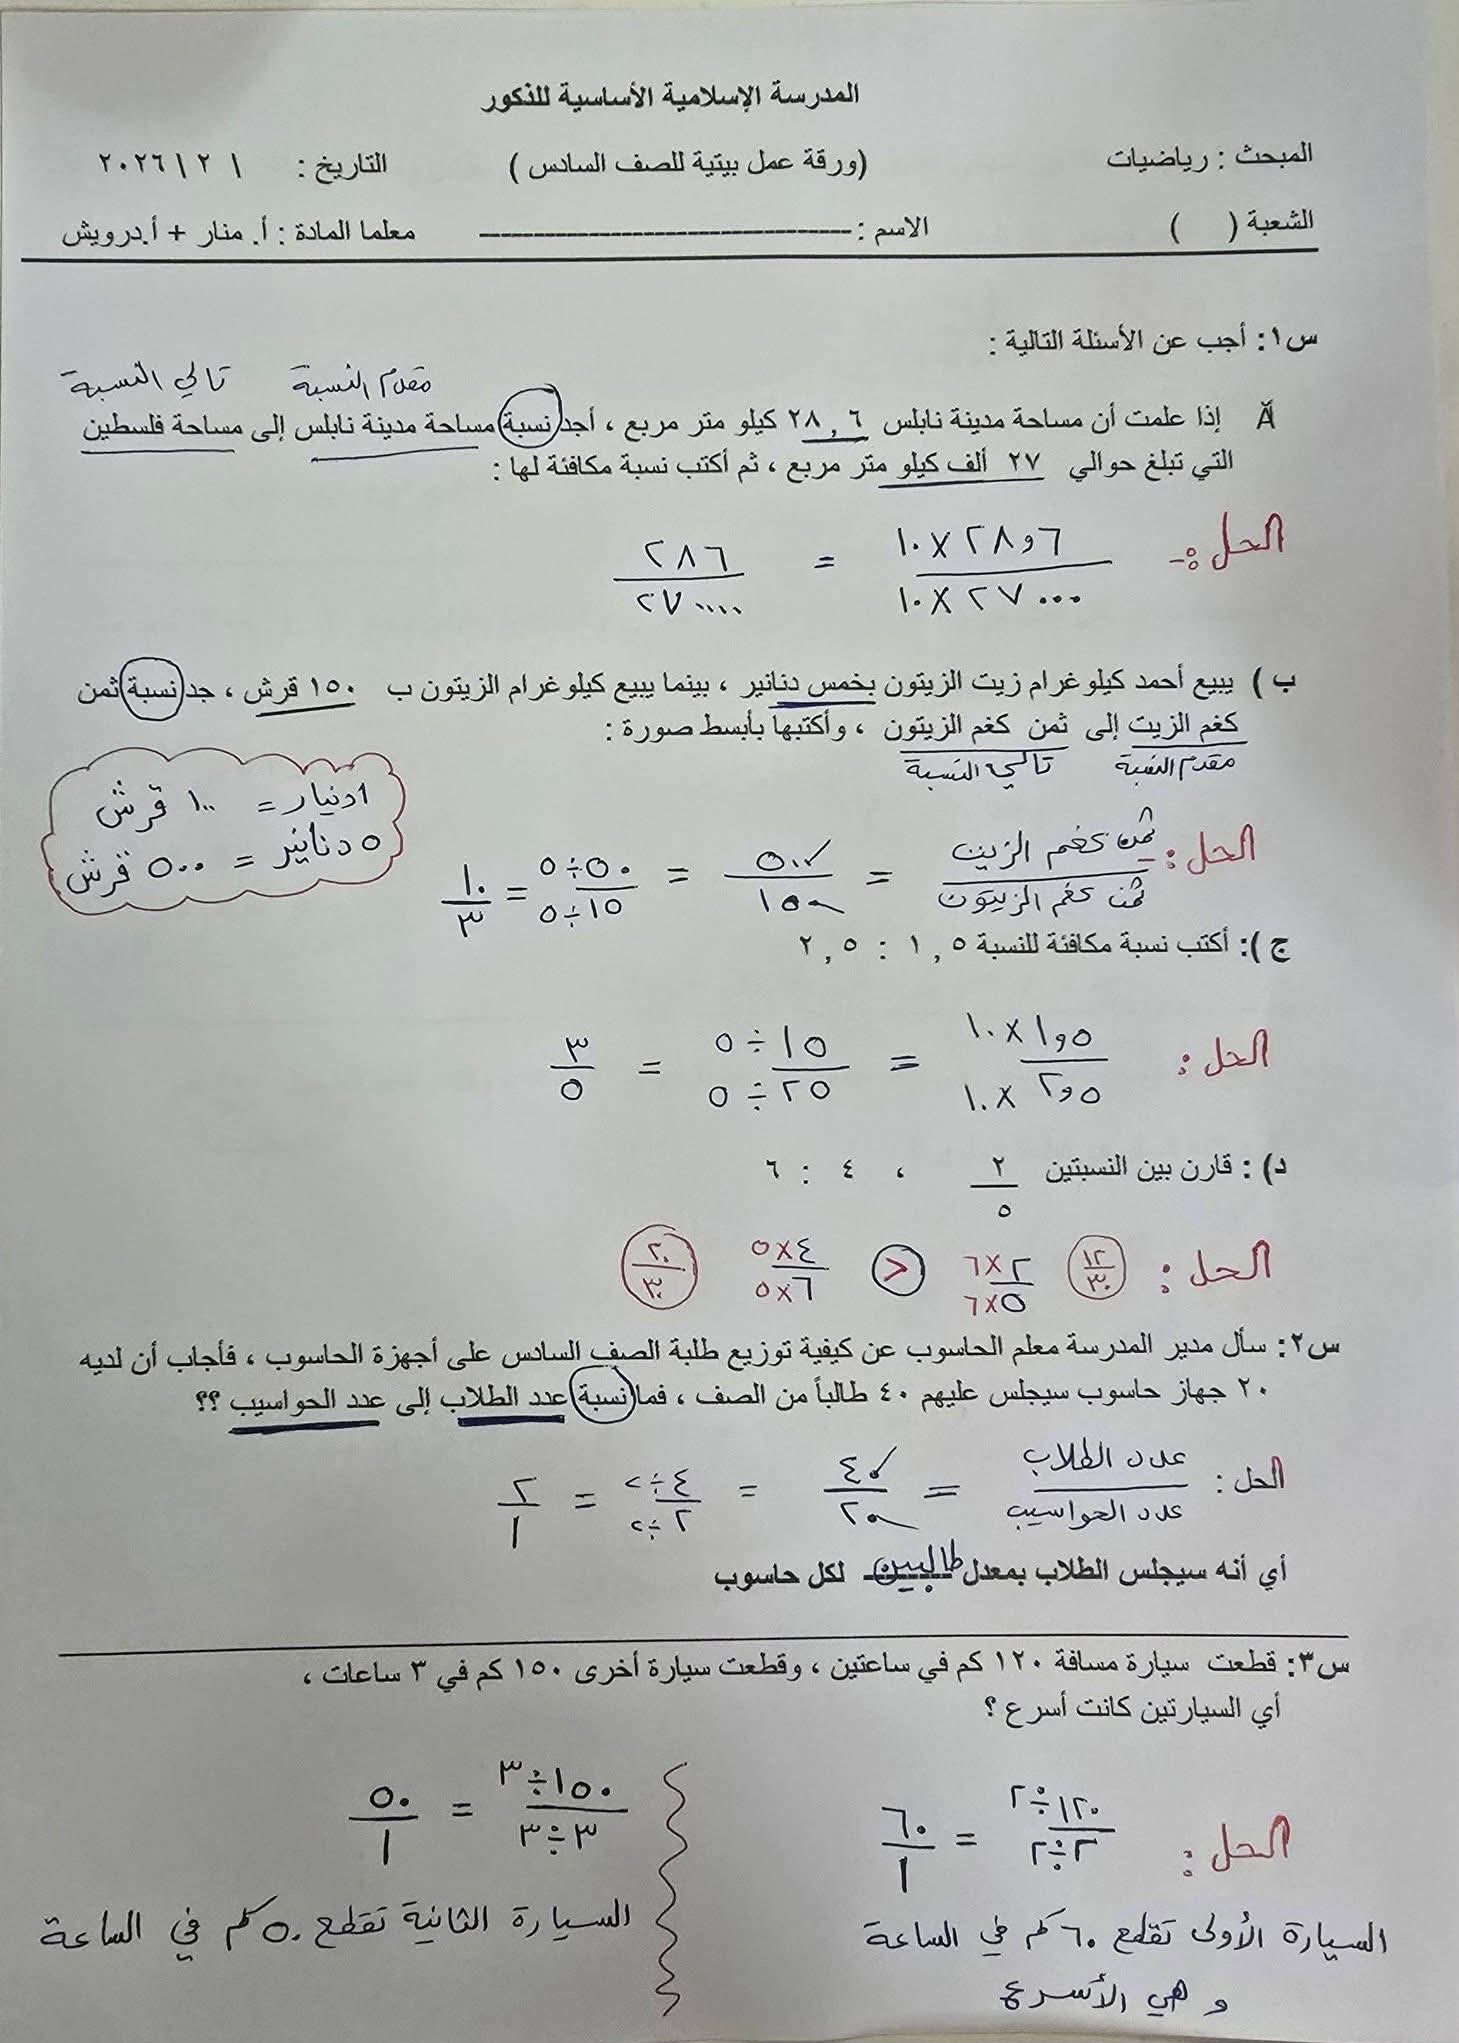 المدرسة الإسلامية الأساسية للذكور
المبحث : رياضيات (ورقة عمل بيتية للصف السادس ) التاريخ : ١ / ٢ / ٢٠٢٦
الشعبة ( ) الاسم : ---------------------------------- معلما المادة : أ. منار + أ.درويش
س١: أجب عن الأسئلة التالية :
مقدم النسبة تالي النسبة
أ) إذا علمت أن مساحة مدينة نابلس ٢٨,٦ كيلو متر مربع ، أجد نسبة مساحة مدينة نابلس إلى مساحة فلسطين
التي تبلغ حوالي ٢٧ ألف كيلو متر مربع ، ثم أكتب نسبة مكافئة لها :
الحل :- ٢٨,٦ × ١٠ / ٢٧٠٠٠ × ١٠ = ٢٨٦ / ٢٧٠٠٠٠
ب ) يبيع أحمد كيلو غرام زيت الزيتون بخمس دنانير ، بينما يبيع كيلو غرام الزيتون ب ١٥٠ قرش ، جد نسبة ثمن
كغم الزيت إلى ثمن كغم الزيتون ، وأكتبها بأبسط صورة :
مقدم النسبة تالي النسبة
١ دنيار = ١٠٠ قرش
٥ دنانير = ٥٠٠ قرش
الحل : ثمن كغم الزيت / ثمن كغم الزيتون = ٥٠٠ / ١٥٠ = ٥٠ ÷ ٥ / ١٥ ÷ ٥ = ١٠ / ٣
ج ): أكتب نسبة مكافئة للنسبة ١,٥ : ٢,٥
الحل : ١,٥ × ١٠ / ٢,٥ × ١٠ = ١٥ ÷ ٥ / ٢٥ ÷ ٥ = ٣ / ٥
د) : قارن بين النسبتين ٢ / ٥ ، ٤ : ٦
الحل : ١٢ / ٣٠ ٢ × ٦ / ٥ × ٦ < ٤ × ٥ / ٦ × ٥ ٢٠ / ٣٠
س٢: سأل مدير المدرسة معلم الحاسوب عن كيفية توزيع طلبة الصف السادس على أجهزة الحاسوب ، فأجاب أن لديه
٢٠ جهاز حاسوب سيجلس عليهم ٤٠ طالباً من الصف ، فما نسبة عدد الطلاب إلى عدد الحواسيب ؟؟
الحل : عدد الطلاب / عدد الحواسيب = ٤٠ / ٢٠ = ٤ ÷ ٢ / ٢ ÷ ٢ = ٢ / ١
أي أنه سيجلس الطلاب بمعدل طالبين لكل حاسوب
س٣: قطعت سيارة مسافة ١٢٠ كم في ساعتين ، وقطعت سيارة أخرى ١٥٠ كم في ٣ ساعات ،
أي السيارتين كانت أسرع ؟
الحل : ١٢٠ ÷ ٢ / ٢ ÷ ٢ = ٦٠ / ١
السيارة الأولى تقطع ٦٠ كم في الساعة
و هي الأسرع
١٥٠ ÷ ٣ / ٣ ÷ ٣ = ٥٠ / ١
السيارة الثانية تقطع ٥٠ كم في الساعة